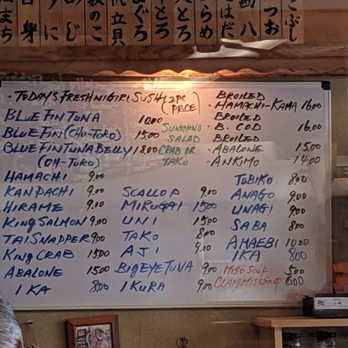 つお
ぶし
勘八
はだ
らめ
とろ
大とろ
まぐろ
帆立貝
のこ
めじ
白身
はまち
TODAY'S FRESH NIGIRI SUSHI 2PC PRICE
BLUE FIN TUNA 10.00
BLUE FIN (CHU-TORO) 15.00
BLUE FIN TUNA BELLY 18.00
(OH-TORO)
HAMACHI 9.00
KANPACHI 9.00
HIRAME 9.00
KING SALMON 9.00
TAI SNAPPER 9.00
KING CRAB 15.00
ABALONE 15.00
IKA 8.00
SUNOMINO
SALAD
CRAB OR
TAKO
SCALLOP 9.00
MIRUGAI 15.00
UNI 15.00
TAKO 8.00
AJI 9.00
BIG EYE TUNA 9.00
IKURA 9.00
BROILED
HAMACHI-KAMA 16.00
BROILED
B. COD 16.00
BROILED
ABALONE 15.00
ANKIMO 14.00
TOBIKO 8.00
ANAGO 9.00
UNAGI 9.00
SABA 8.00
AMAEBI 10.00
IKA 8.00
MISO SOUP 5.00
CLAM MISO SOUP 6.00